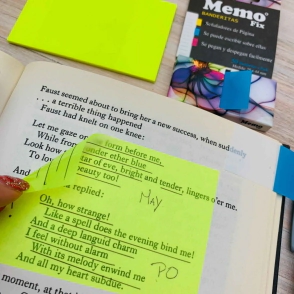 Memo
BANDERITAS Fix
Señaladores de Página
Se puede escribir sobre ellas
Se pegan y despegan facilmente
Faust seemed about to bring her a new success, when sud
. . . a terrible thing happened
Faust had knelt on one knee:
Let me gaze on form before me,
While from yonder ether blue
Look how star of eve, bright and tender, lingers o'er me.
To lo beauty too!
replied:
Oh, how strange!
Like a spell does the evening bind me!
And a deep languid charm
I feel without alarm
With its melody enwind me
And all my heart subdue.
moment, at
MAY
PO